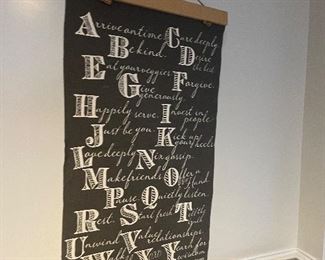 Arrive on time. Care deeply.
Be kind. Desire the best.
Eat your veggies. Forgive.
Give generously.
Happily serve. Invest in people.
Just be you. Kick up your heels.
Love deeply. Nix gossip.
Make friends. Offer a hand.
Pause. Quietly listen.
Rest. Start fresh. Tactfully talk
Unwind. Value relationships.
Yearn for wisdom